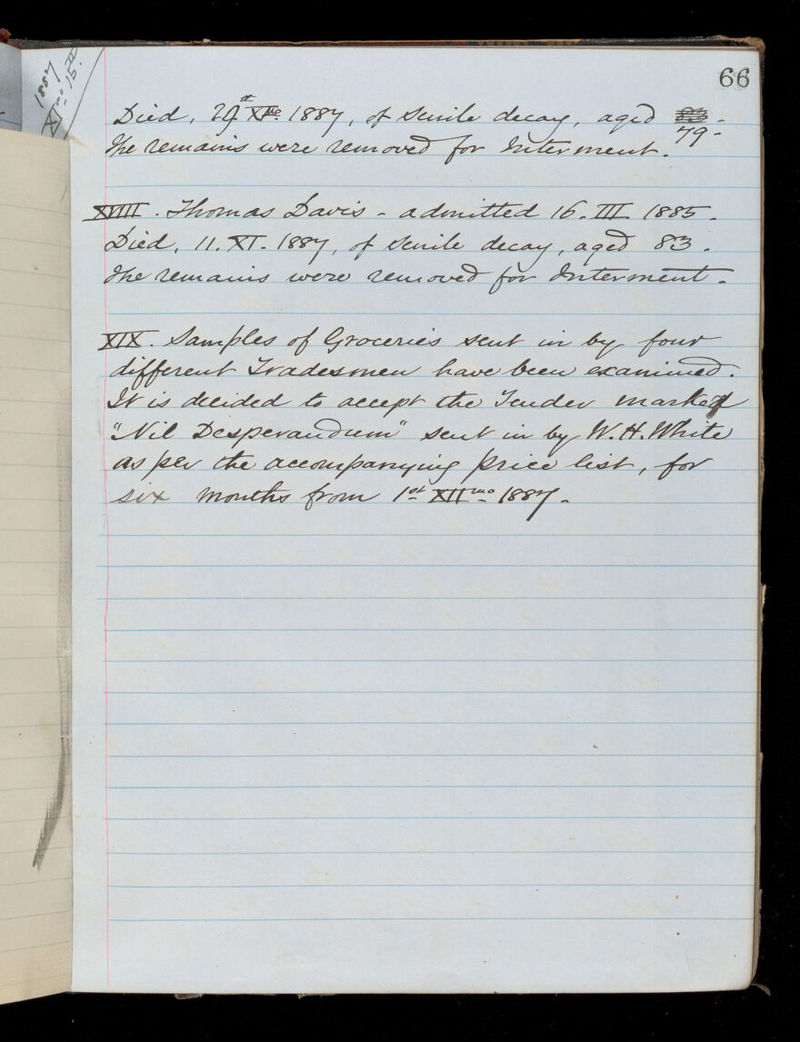 66
1887
XImo 15.
Died, 29th Xmo. 1887, of senile decay, aged 83 -
79 -
The remains were removed for Interment.
XVIII. Thomas Davis - admitted 16. III. 1885.
Died, 11. XI. 1887, of senile decay, aged 83.
The remains were removed for Interment.
XIX. Samples of Groceries sent in by four
different Tradesmen have been examined.
It is decided to accept the Tender marked
"Nil Desperandum" sent in by W. H. White
as per the accompanying price list, for
six months from 1st XIImo 1887.